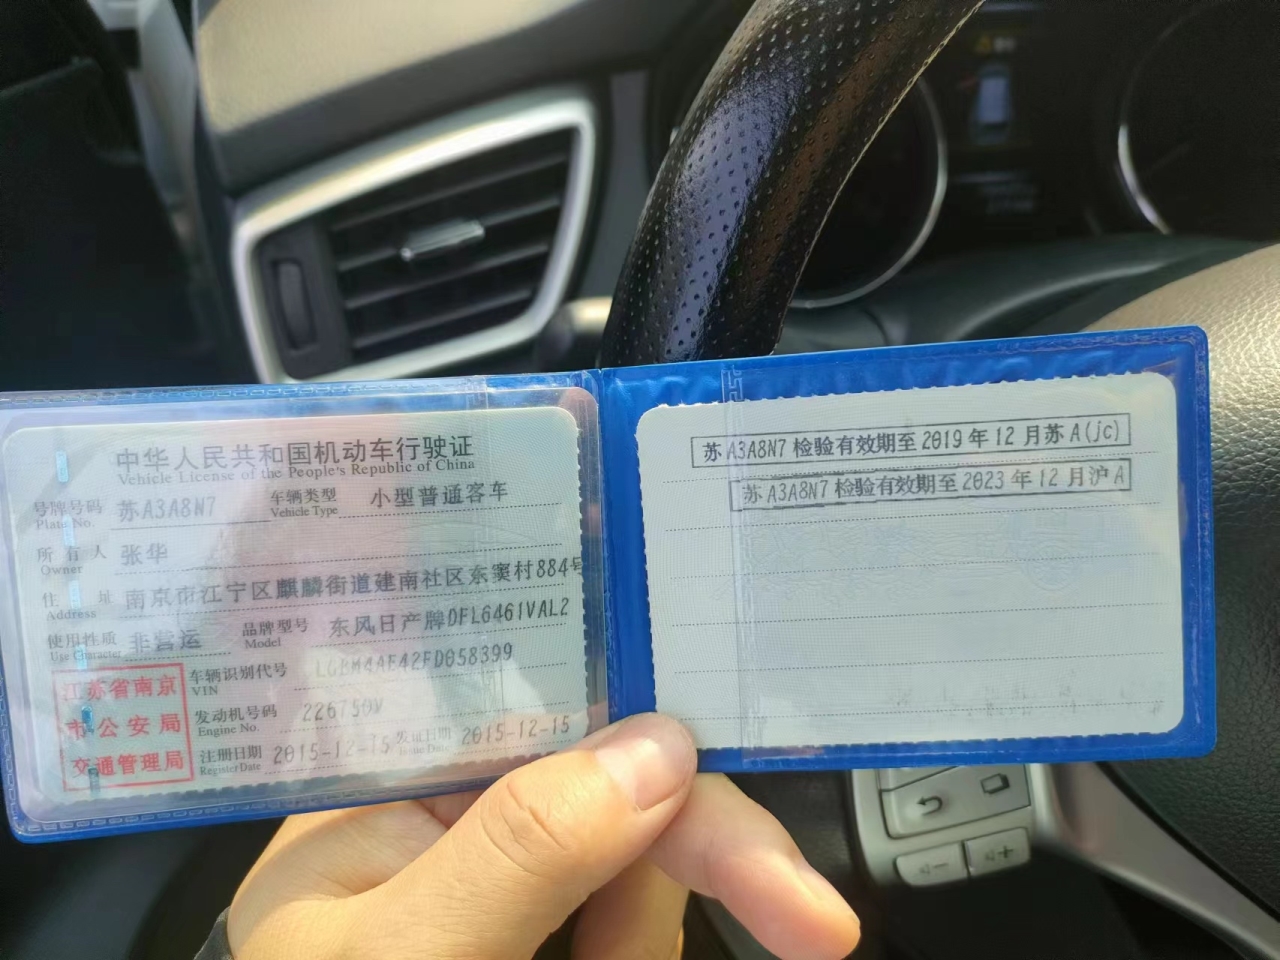 中华人民共和国机动车行驶证
Vehicle License of the People's Republic of China
号牌号码 苏A3A8N7 车辆类型 小型普通客车
Plate No. Vehicle Type
所有人 张华
Owner
住址 南京市江宁区麒麟街道建南社区东窦村884号
Address
使用性质 非营运 品牌型号 东风日产牌DFL6461VAL2
Use Character Model
江苏省南京
市公安局
交通管理局
车辆识别代号
VIN
发动机号码
Engine No.
注册日期 2015-12-15 发证日期 2015-12-15
Register Date Issue Date
苏A3A8N7检验有效期至2019年12月苏A(jc)
苏A3A8N7检验有效期至2023年12月沪A